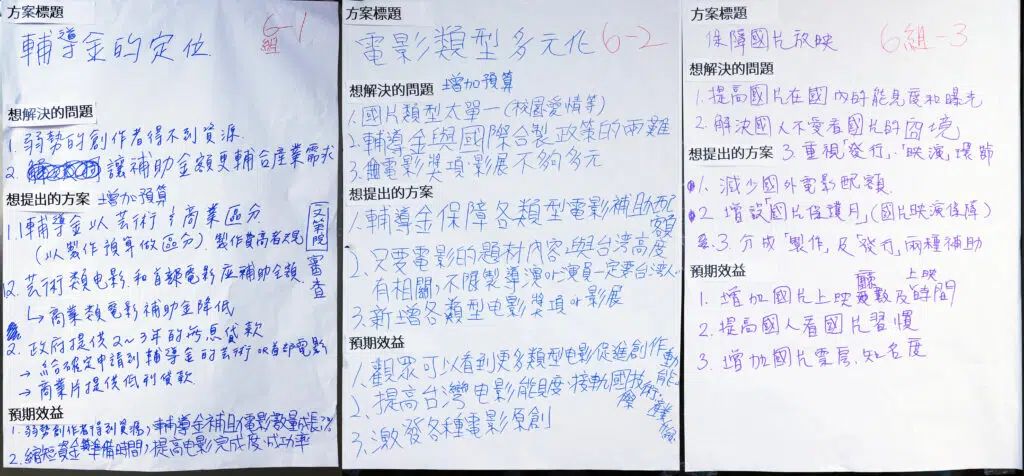 方案標題
輔導金的定位
6-1
組
想解決的問題
1. 弱勢的創作者得不到資源.
2. 讓補助金額更輔合產業需求
想提出的方案 增加預算
1.1輔導金以芸術、商業區分
(以製作預算做區分), 製作費高者
文策院
審查
芸術類电影和首部電影 補助金額
↳ 商業類電影補助金降低
2. 政府提供2~3年的無息貸款
→ 給確定申請到輔導金的芸術or首部電影
→ 商業片提供低利貸款
預期效益
1. 弱勢創作者得到資源, 輔導金補助電影數量成長
2. 縮短資金準備時間, 提高电影完成度.成功率
方案標題
電影類型多元化 6-2
想解決的問題 增加預算
1.國片類型太單一(校園愛情等)
2.輔導金與國際合製政策的兩難
3.電影獎項.影展不夠多元
想提出的方案
1.輔導金保障各類型電影補助配額
2.只要電影的題材內容與台灣高度
有相關,不限製導演or演員一定要台灣人
3.新增各類型电影獎項or影展
預期效益
1.觀眾可以看到更多類型电影促進創作動能
2.提高台灣电影能見度.接軌國際
3.激發各種電影原創
方案標題
保障國片放映 6組-3
想解決的問題
1.提高國片在國內的能見度和曝光
2.解決國人不愛看國片的窘境
想提出的方案 3.重視「發行」.「映演」環節
1.減少國外電影配額
2 增設「國片保護月」(國片映演保障)
3.分成「製作」及「發行」兩種補助
預期效益
1.增加國片上映廳數及上映時間
2.提高國人看國片習慣
3.增加國片票房.知名度